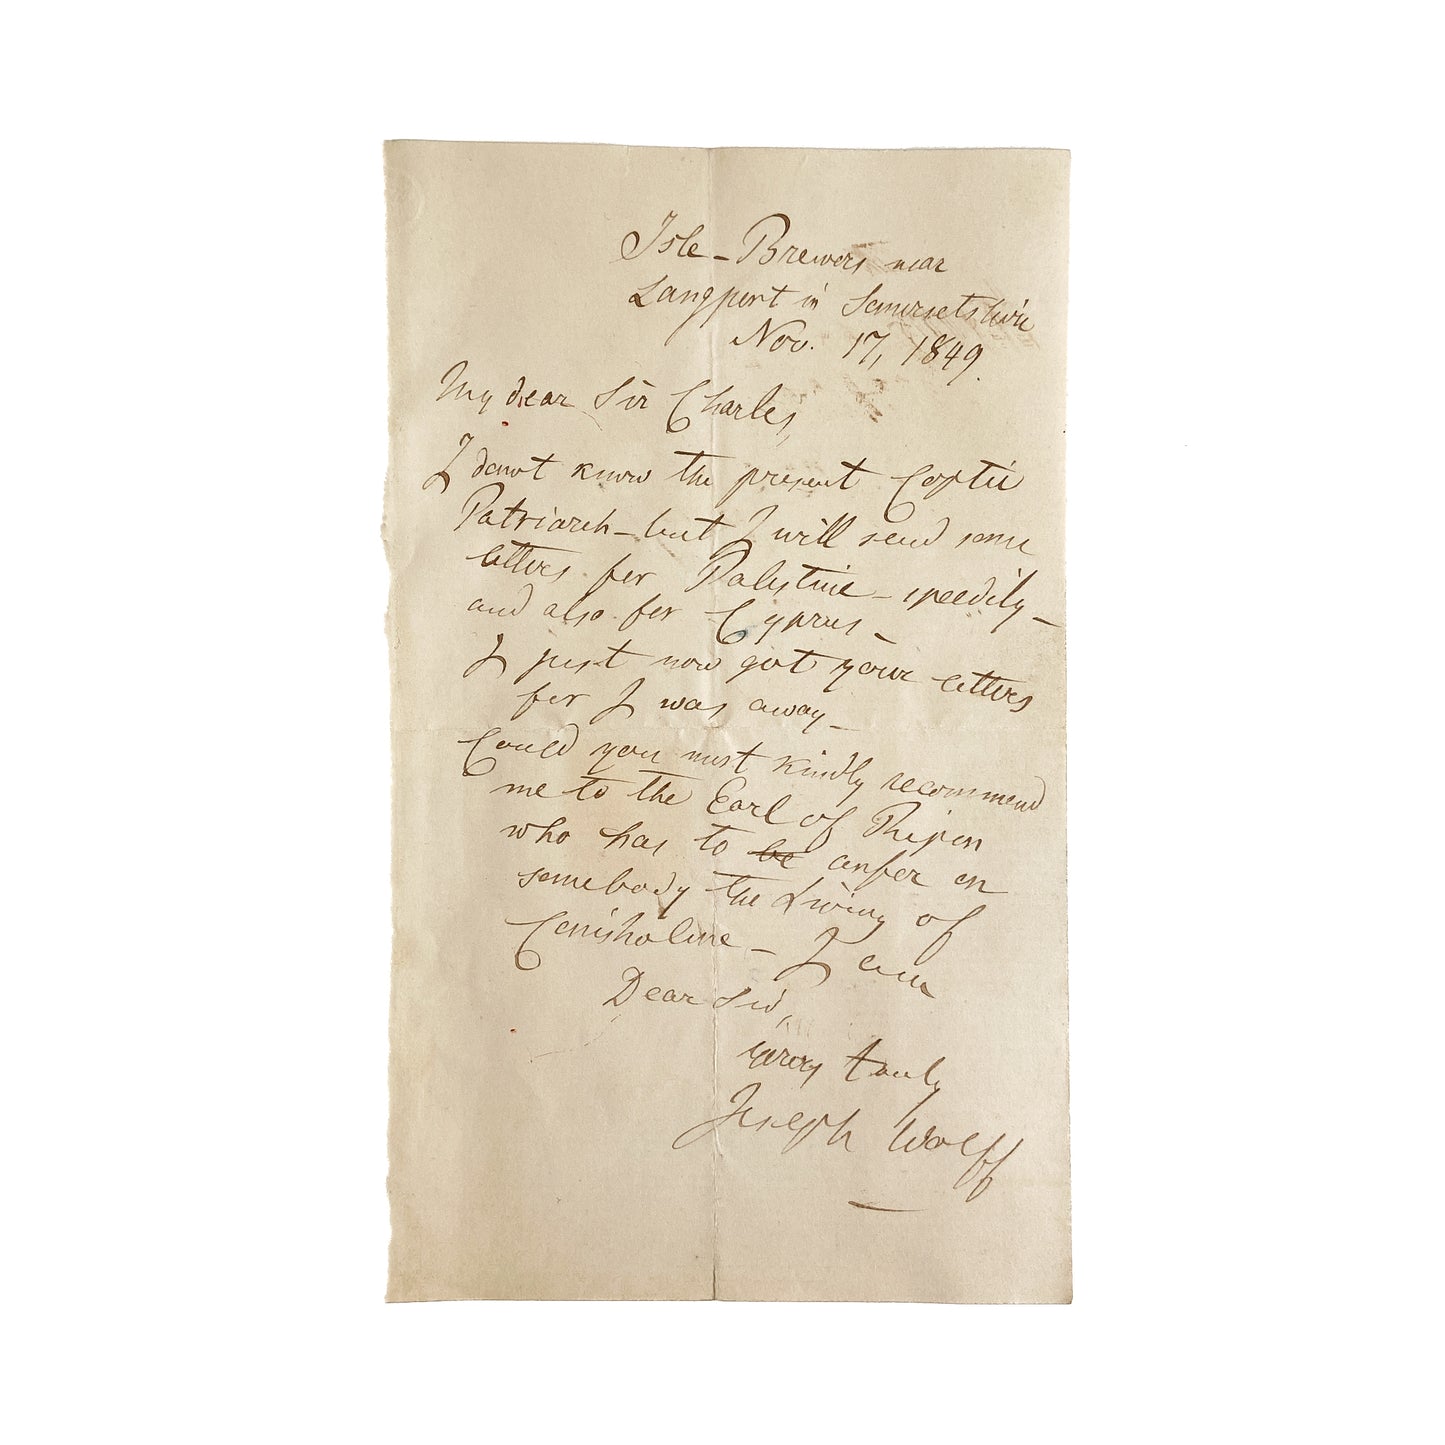 Isle-Brewers near
Langport in Somersetshire
Nov. 17, 1849.
My dear Sir Charles,
I donot know the present Coptic
Patriarch - but I will send some
letters for Palestine - speedily -
and also for Cyprus -
I just now got your letters
for I was away -
Could you most kindly recommend
me to the Earl of Ripon
who has to be confer on
somebody the Living of
I am
Dear Sir,
yours truly
Joseph Wolff